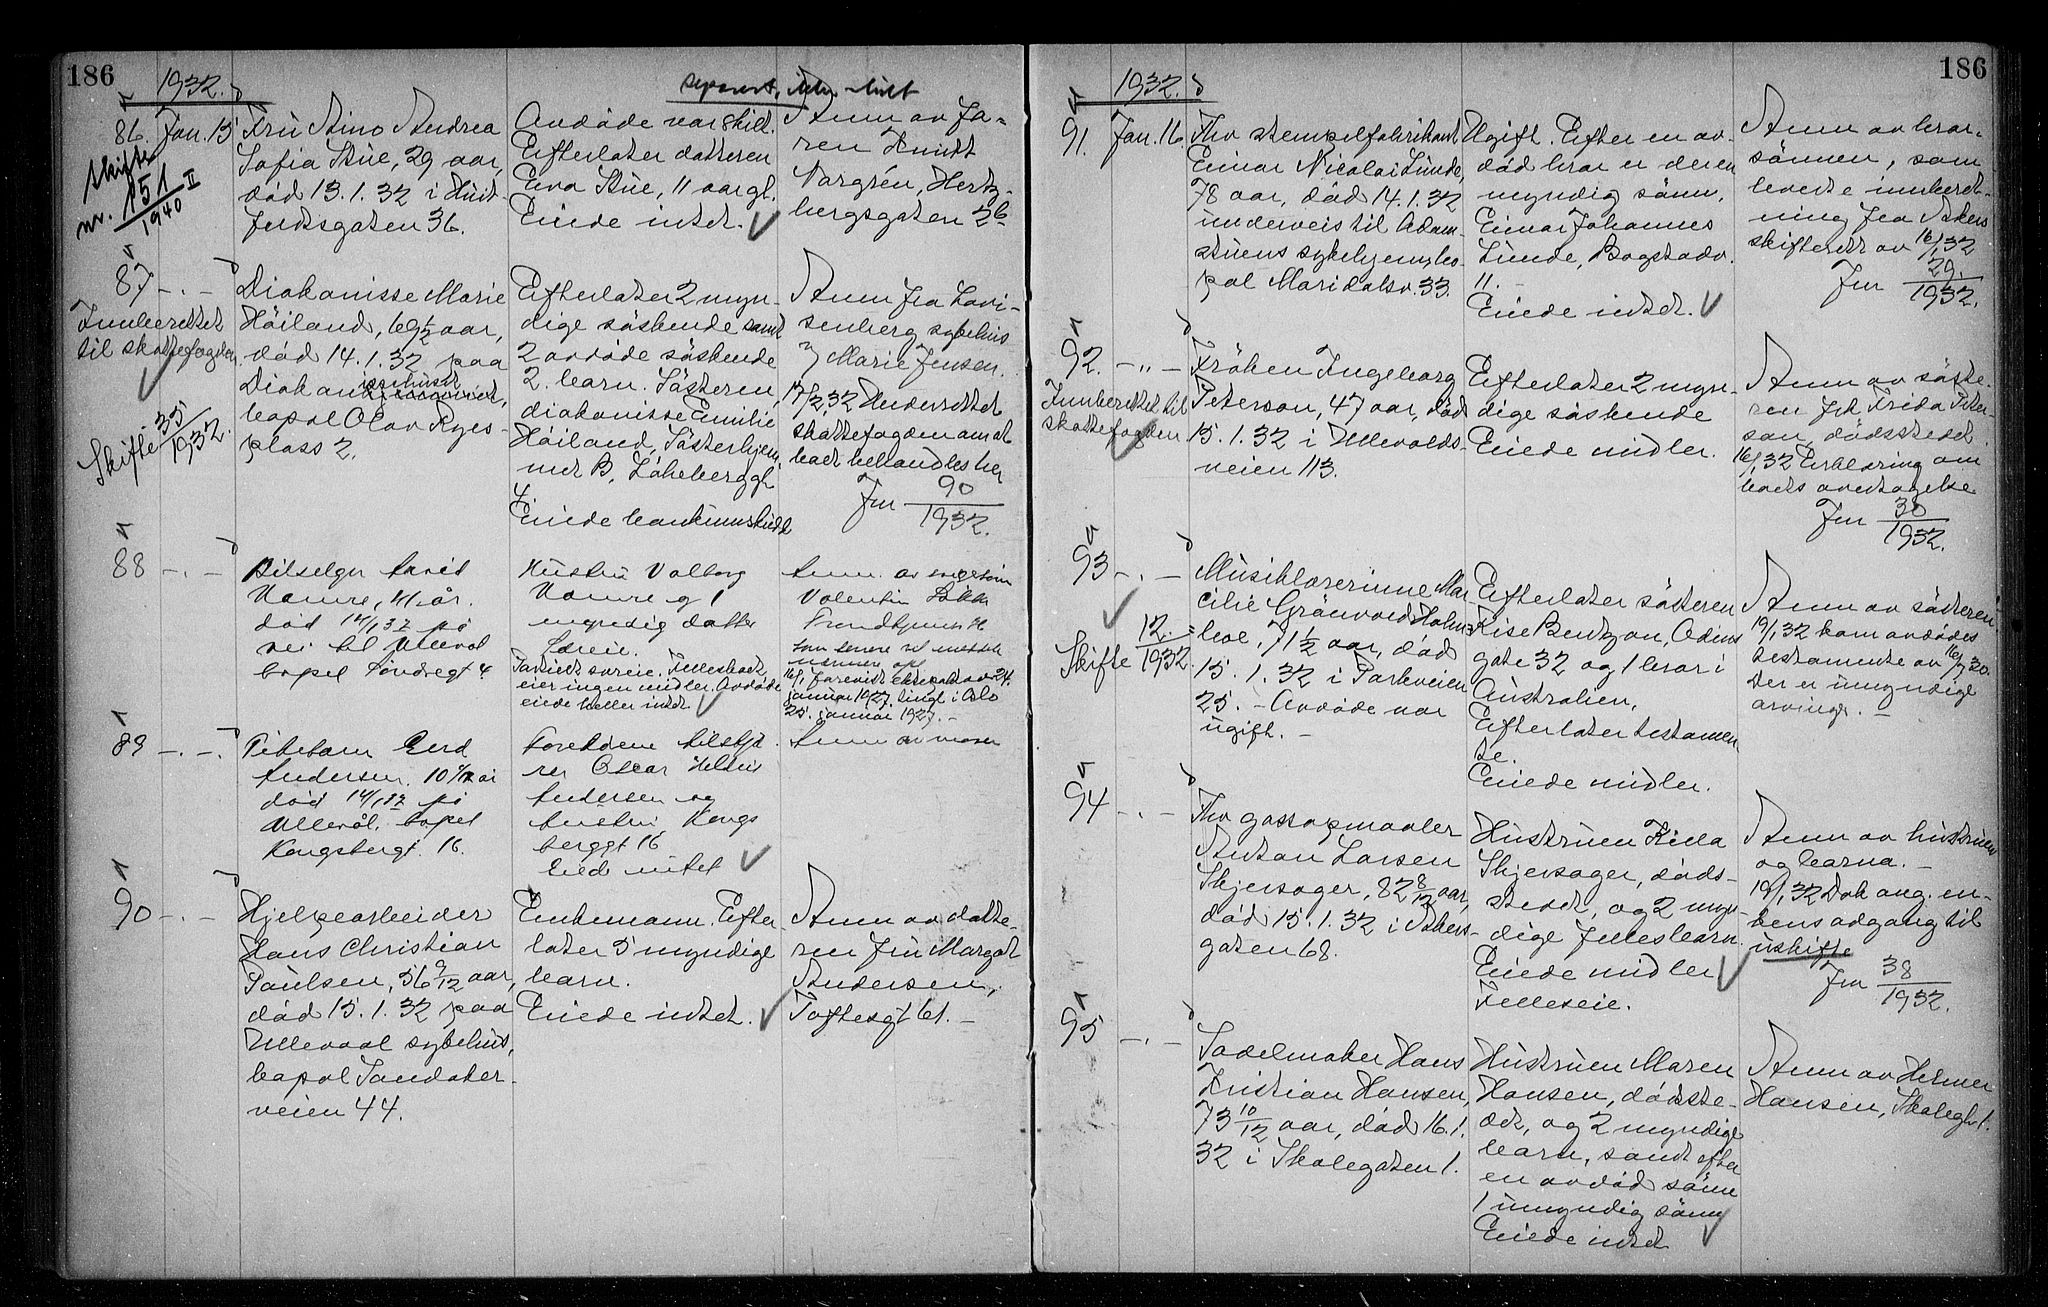 186
1932.
separert, ikke skilt
86. Jan. 15
Skifte
nr. 151 II
1940
Fru Aino Andrea
Sofia Stue, 29 aar,
död 13.1.32 i Huit-
feldtsgaten 36.
Avdöde var skilt.
Efterlater datteren
Eva Stue, 11 aar gl.
Eiede intet.
Anm av fa-
ren Knut
Norgrén, Hertz-
bergsgaten 3b
87 -.-
Innberettet
til skattefogden
Skifte 35
1932.
Diakonisse Marie
Höiland, 69 1/2 aar,
död 14.1.32 paa
Diakonissehuset,
bopæl Olav Ryes
plass 2.
Efterlater 2 myn-
dige söskende samt
2 avdöde söskende
2. barn. Södsteren,
diakonisse Emilie
Höiland, Södsterhjem-
met B, Lökeberggt
4.
Eiede bankinnskudd
Anm fra Lovi-
senberg sykehus
v/ Marie Jensen.
17/2 32 Underrettet
skattefogden om at
boet behandles her
Jnr 90
1932.
88 -.-
Bilselger Arvid
Namre, 41 år.
död 14/1 32 på
vei til Ullevål
bopel Tøndergt 4
Hustru Valborg
Namre og 1
myndig datter
Særeie.
Fastsatt særeie. Fellesboet
eier ingen midler. Avdöde
eiede heller intet.
Anm. av svigersön
Valentin
Trondhjemsv
som senere vil
16/1 forevist ektepakt av 24.
januar 1927, tingl. i Oslo
25. januar 1927. -
89 -.-
Pikebarn Gerd
Andersen. 10 år
död 14/1 32 på
Ullevål. bopel
Kongsberggt. 16.
Foreldrene
Oscar
Andersen og
hustru Kongs
berggt 16
Eied intet
Anm av moren
90 -.-
Hjelpearbeider
Hans Christian
Paulsen, 56 9/12 aar,
död 15.1.32 paa
Ullevaal sykehus,
bopæl Sandaker-
veien 44.
Enkemann. Efter-
later 5 myndige
barn.
Eiede intet.
Anm av datte-
ren fru Margot
Andersen,
Toftesgt 61. -
186
1932.
91. Jan. 16.
Fhv stempelfabrikant
Einar Nicolai Lunde,
78 aar, död 14.1.32
underveis til Adam-
stuens sykehjem, bo-
pæl Maridalsv. 33.
Ugift. Efter en av-
död bror er der en
myndig sönn,
Einar Johannes
Lunde, Bogstadv.
11. -
Eiede intet.
Anm av bror-
sönnen, som
leverte innberet-
ning fra Akers
skifterett av 16/1 32
Jnr 29.
1932.
92. -"-
Innberettet til
skattefogden
Fröken Ingeborg
Peterson, 47 aar, död
15.1.32 i Ullevolds-
veien 113.
Efterlater 2 myn-
dige söskende
Eiede midler.
Anm av söste-
ren frk Frida Peter-
son, dödsstedet
16/1 32 Erklæring om
boets overtagelse
Jnr 30
1932.
93 -.-
Skifte 12.
1932.
Musiklærerinne Mar
cilie Grönvold Holm-
boe, 71 1/2 aar, död
15.1.32 i Parkveien
25. - Avdöde var
ugift. -
Efterlater södsteren
Rise Bentzon, Odins
gate 32 og 1 bror i
Australien.
Efterlater testamen-
te.
Eiede midler.
Anm av södsteren
19/1 32 kom avdödes
testamente av 16/7 30.
Der er umyndige
arvinger. -
94 -.-
Fhv gassopmaaler
Anton Larsen
Skjersager, 82 8/12 aar,
död 15.1.32 i Akers-
gaten 68.
Hustruen Kaia
Skjersager, döds-
stedet, og 2 myn-
dige fellesbarn.
Eiede midler
Felleseie.
Anm av hustruen
og barna. -
19/1 32 Dok ang. en-
kens adgang til
uskifte
Jnr 38
1932.
95 -.-
Sadelmaker Hans
Kristian Hansen,
73 10/12 aar, död 16.1.
32 i Skolegaten 1.
Hustruen Maren
Hansen, dödsste-
det, og 2 myndige
barn, samt efter
en avdöd sönn
1 umyndig sönn
Eiede intet
Anm av Helmer
Hansen, Skolegt 1.